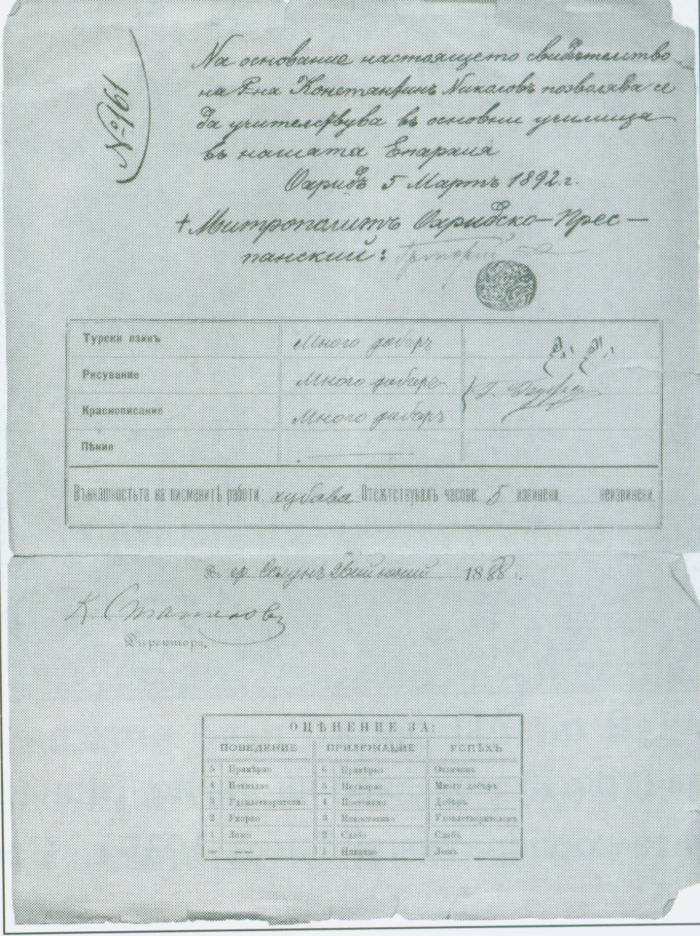 № 161
На основание настоящето свидѣтелство
на Г-на Константинъ Николовъ позволява се
да учителствува въ основни училища
въ нашата Епархия
Охридъ 5 Мартъ 1892 г.
+ Митрополитъ Охридско-Прес-
панский:
Турски язикъ Много добъръ
Рисувание Много добъръ
Краснописание Много добъръ
Пѣние
Вънкашностьта на писменитѣ работи: хубава Отсѫтствувалъ часове: 5 извинени, неизвинени.
гр. Солунъ 1888.
Директоръ,
ОЦѢНЕНИЕ ЗА:
ПОВЕДЕНИЕ ПРИЛЕЖАНИЕ УСПѢХЪ
5 Примѣрно 6 Примѣрно Отличенъ
4 5 Много добъръ
3 Удовлетворително 4 Постоянно Добъръ
2 Укорно 3 Удовлетворителенъ
1 Лошо 2 Слабо Слабъ
— — — 1 Никакво Лошъ